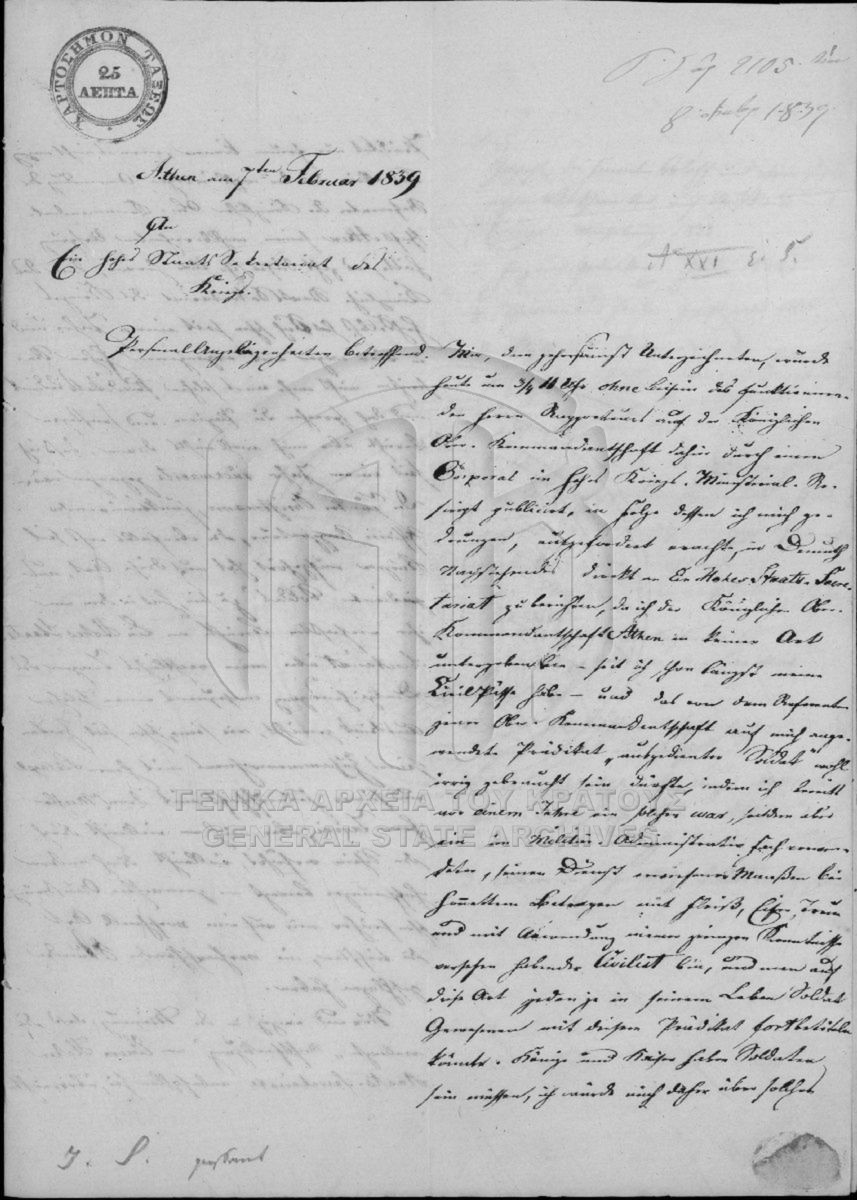 ΧΑΡΤΟΣΗΜΟΝ ΤΑΞΕΩΣ
25
ΛΕΠΤΑ
2105
8 1839
Athen am 7ten Februar 1839
An
Ein hohes Staats Sekretariat des
Kriegs.
A XXI
Personal Angelegenheiten betreffend.
Mir, dem gehorsamst Unterzeichneten, wurde
heute um 3/4 11 Uhr ohne Beisein des funktioniren-
den Herrn Rapporteurs auf der Königlichen
Ober-Kommandantschaft dahier durch einen
Corporal ein hohes Kriegs-Ministerial-Re-
skript publicirt, in Folge dessen ich mich ge-
drungen, aufgefordert erachte, in Demuth
Nachstehendes direkt an Ein Hohes Staats-Secre-
tariat zu berichten, da ich der Königlichen Ober-
Kommandantschaft Athen in keiner Art
untergeben bin - seit ich schon längst meine
Civil Pässe habe - und das von dem Referenten
jener Ober-Kommandantschaft auf mich ange-
wendete Prädikat „ausgedienter Soldat" wohl
irrig gebraucht sein dürfte, indem ich bereits
vor einem Jahre ein solcher war, seitdem aber
ein im Militär-Administrativ Fach verwen-
deter, seinen Dienst erwiesener Maaßen bei
honettem Betragen mit Fleiß, Eifer, Treue
und mit Anwendung meiner geringen Kenntnisse
versehen habender Civilist bin, und man auf
diese Art jeden je in seinem Leben Soldat
Gewesenen mit diesem Prädikat fortbetiteln
könnte. Könige und Kaiser haben Soldaten
sein müssen, ich würde mich daher über solches
ΓΕΝΙΚΑ ΑΡΧΕΙΑ ΤΟΥ ΚΡΑΤΟΥΣ
GENERAL STATE ARCHIVES
J. S.